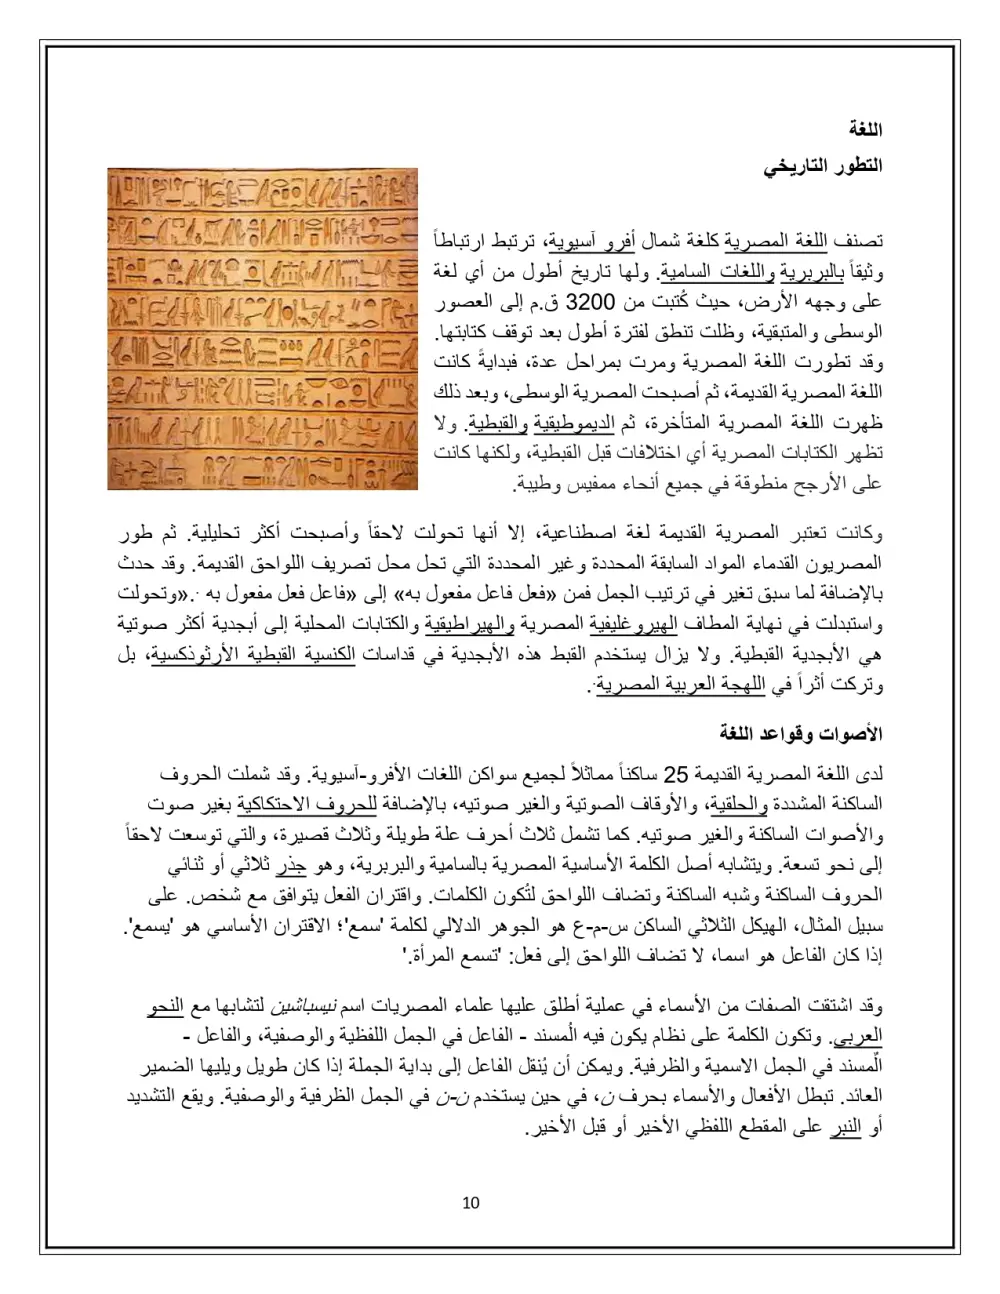 اللغة
التطور التاريخي
تصنف اللغة المصرية كلغة شمال أفرو آسيوية، ترتبط ارتباطاً
وثيقاً بالبربرية واللغات السامية. ولها تاريخ أطول من أي لغة
على وجهه الأرض، حيث كُتبت من 3200 ق.م إلى العصور
الوسطى والمتبقية، وظلت تنطق لفترة أطول بعد توقف كتابتها.
وقد تطورت اللغة المصرية ومرت بمراحل عدة، فبدايةً كانت
اللغة المصرية القديمة، ثم أصبحت المصرية الوسطى، وبعد ذلك
ظهرت اللغة المصرية المتأخرة، ثم الديموطيقية والقبطية. ولا
تظهر الكتابات المصرية أي اختلافات قبل القبطية، ولكنها كانت
على الأرجح منطوقة في جميع أنحاء ممفيس وطيبة.
وكانت تعتبر المصرية القديمة لغة اصطناعية، إلا أنها تحولت لاحقاً وأصبحت أكثر تحليلية. ثم طور
المصريون القدماء المواد السابقة المحددة وغير المحددة التي تحل محل تصريف اللواحق القديمة. وقد حدث
بالإضافة لما سبق تغير في ترتيب الجمل فمن «فعل فاعل مفعول به» إلى «فاعل فعل مفعول به .«وتحولت
واستبدلت في نهاية المطاف الهيروغليفية المصرية والهيراطيقية والكتابات المحلية إلى أبجدية أكثر صوتية
هي الأبجدية القبطية. ولا يزال يستخدم القبط هذه الأبجدية في قداسات الكنسية القبطية الأرثوذكسية، بل
وتركت أثراً في اللهجة العربية المصرية.
الأصوات وقواعد اللغة
لدى اللغة المصرية القديمة 25 ساكناً مماثلاً لجميع سواكن اللغات الأفرو-آسيوية. وقد شملت الحروف
الساكنة المشددة والحلقية، والأوقاف الصوتية والغير صوتيه، بالإضافة للحروف الاحتكاكية بغير صوت
والأصوات الساكنة والغير صوتيه. كما تشمل ثلاث أحرف علة طويلة وثلاث قصيرة، والتي توسعت لاحقاً
إلى نحو تسعة. ويتشابه أصل الكلمة الأساسية المصرية بالسامية والبربرية، وهو جذر ثلاثي أو ثنائي
الحروف الساكنة وشبه الساكنة وتضاف اللواحق لتُكون الكلمات. واقتران الفعل يتوافق مع شخص. على
سبيل المثال، الهيكل الثلاثي الساكن س-م-ع هو الجوهر الدلالي لكلمة 'سمع'؛ الاقتران الأساسي هو 'يسمع'.
إذا كان الفاعل هو اسما، لا تضاف اللواحق إلى فعل: 'تسمع المرأة.'
وقد اشتقت الصفات من الأسماء في عملية أطلق عليها علماء المصريات اسم نيسباشين لتشابها مع النحو
العربي. وتكون الكلمة على نظام يكون فيه المُسند - الفاعل في الجمل اللفظية والوصفية، والفاعل -
المُسند في الجمل الاسمية والظرفية. ويمكن أن يُنقل الفاعل إلى بداية الجملة إذا كان طويل ويليها الضمير
العائد. تبطل الأفعال والأسماء بحرف ن، في حين يستخدم ن-ن في الجمل الظرفية والوصفية. ويقع التشديد
أو النبر على المقطع اللفظي الأخير أو قبل الأخير.
10